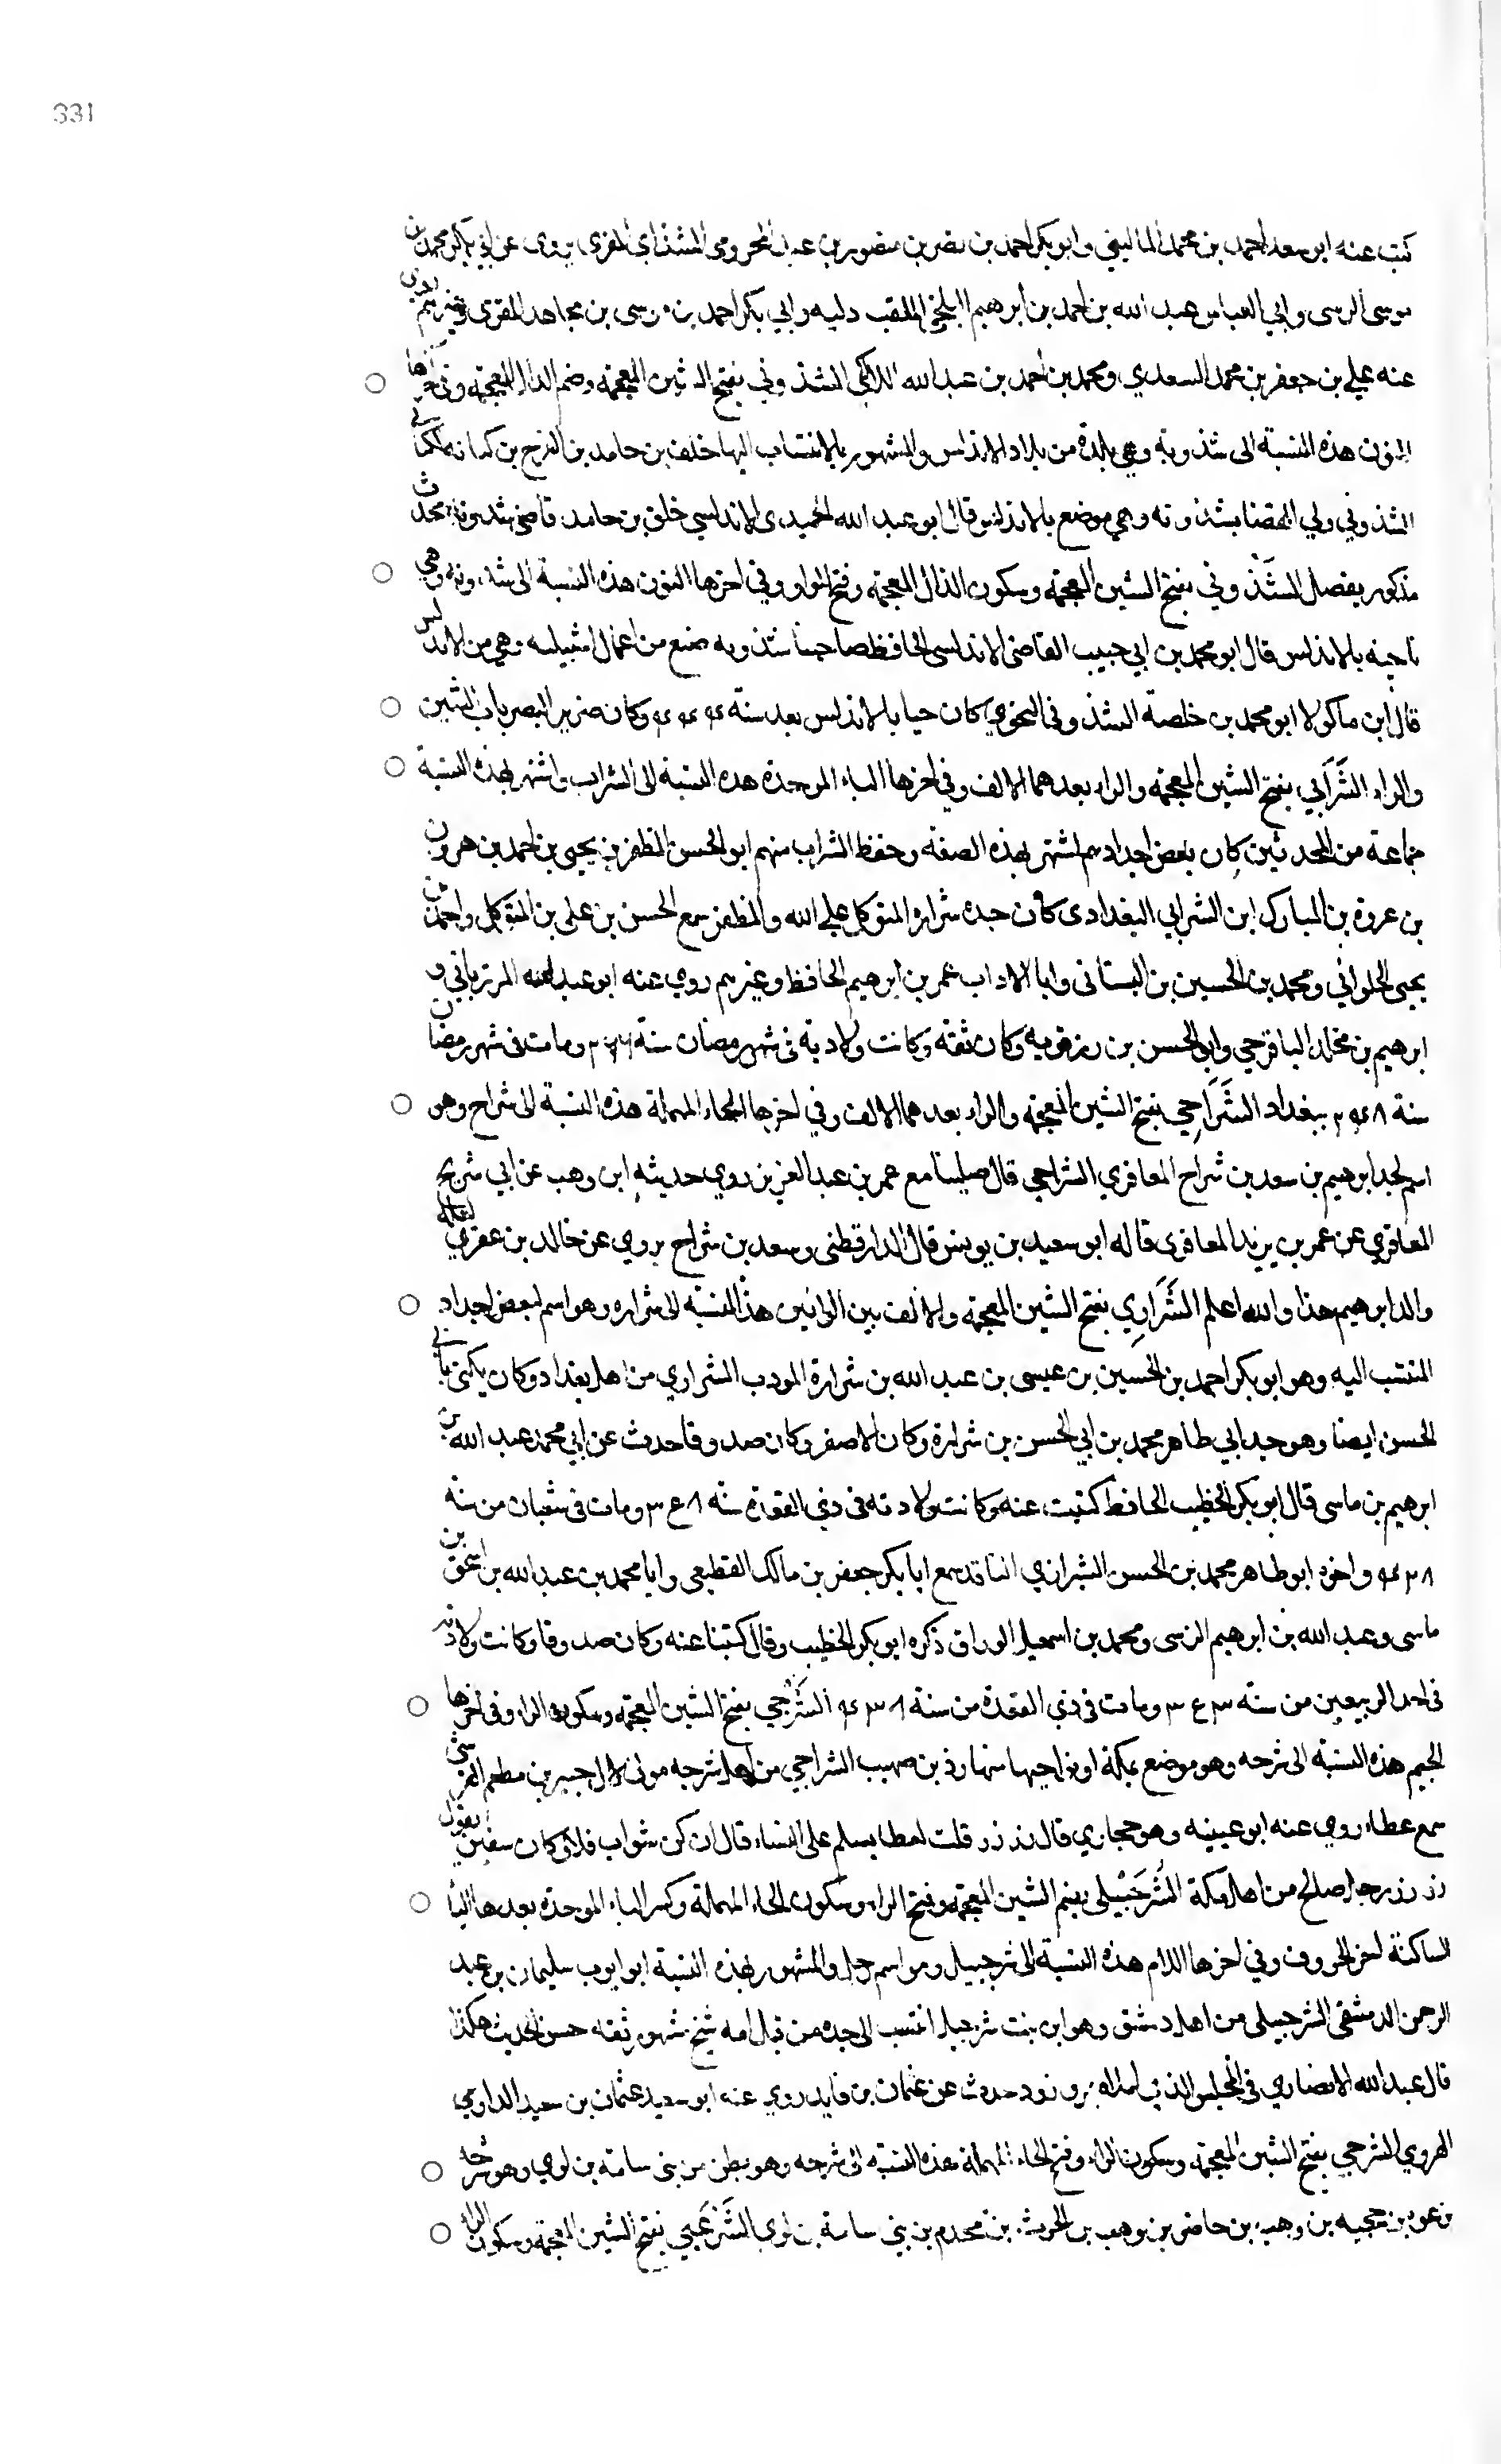 331
كتب عنه ابو سعد احمد بن محمد الماليني وابو بكر احمد بن نصر بن منصور بن عبد المخزومي الشذاي المقري يروي عن ابي بكر محمد بن
موسى الزيني وابي العباس عبد الله بن احمد بن ابرهيم البلخي الملقب دلبه وابي بكر احمد بن موسى بن مجاهد المقري وغيرهم روى
عنه علي بن جعفر بن محمد السعدي ومحمد بن احمد بن عبد الله اللالكي الشذوني بفتح الشين المعجمة وضم الذال المعجمة وفي اخرها
النون هذه النسبة الى شذونة وهي بلدة من بلاد الاندلس والمشهور بالانتساب اليها خلف بن حامد بن الفرج بن كنانه الكناني
الشذوني ولي القضا بشذونه وهي موضع بالاندلس قال ابو عبد الله الحميدي الاندلسي خلف بن حامد قاضي شذونة محدث
مذكور بفضل الشَذْوني بفتح الشين المعجمة وسكون الذال المعجمة وفتح الواو وفي اخرها النون هذه النسبة الى شذونه وهي
ناحية بالاندلس قال ابو محمد بن ابي حبيب القاضي الاندلسي الحافظ صاحبنا شذونه ضيع من اعمال اشبيليه وهي من الاندلس
قال ابن ماكولا ابو محمد بن خلصة الشذوني النحوي كان حيا بالاندلس بعد سنة ۴۴۴ وكان ضرير البصر باب الشين
والراء الشَّرَابي بفتح الشين المعجمة والراء بعدهما الالف وفي اخرها الباء الموحدة هذه النسبة الى الشراب واشتهر بهذه النسبة
جماعة من المحدثين كان بعض اجدادهم اشتهر بهذه الصفة وحفظ الشراب منهم ابو الحسن المظفر بن يحيى بن احمد بن هرون
بن عروة بن المبارك ابن الشرابي البغدادي كان جده شرابي المتوكل على الله والمظفر سمع الحسن بن علي بن المتوكل واحمد بن
يحيى الحلواني ومحمد بن الحسين بن البستاني وابا الاداب عمر بن ابرهيم الحافظ وغيرهم روى عنه ابو عبد الله المرزباني و
ابرهيم بن مخلد الباقرحي وابو الحسن بن رزقويه وكان ثقة وكانت ولادته في شهر رمضان سنة ومات في شهر رمضان
سنة ۳۴۸ ببغداد الشَّرَاحِي بفتح الشين المعجمة والراء بعدهما الالف وفي اخرها الحاء المهملة هذه النسبة الى شراح وهو
اسم لجد ابرهيم بن سعد بن شراح المعافري الشراحي قال صلينا مع عمر بن عبد العزيز روى حديثه ابن وهب عن ابي شريح
المعافري عن عمر بن يزيد المعافري قاله ابو سعيد بن يونس قال الدارقطني وسعد بن شراح يروي عن خالد بن عفري لعله
والد ابرهيم هذا والله اعلم الشَّرَارِي بفتح الشين المعجمة والالف بين الرائين هذه النسبة الى شراره وهو اسم لبعض اجداد
المنتسب اليه وهو ابو بكر احمد بن الحسين بن عيسى بن عبد الله بن شرارة المودب الشراري من اهل بغداد وكان يكنى بابي
الحسن ايضا وهو جد ابي طاهر محمد بن ابي الحسن بن شرارة وكان الاصغر وكان صدوقا حدث عن ابي محمد عبد الله بن
ابرهيم بن ماسي قال ابو بكر الخطيب الحافظ كتبت عنه وكانت ولادته في ذي القعدة سنة ۳۴۸ ومات في شعبان من سنة
۴۳۸ واخوه ابو طاهر محمد بن الحسن الشراري الناقد سمع ابا بكر جعفر بن مالك القطيعي وابا محمد بن عبد الله بن اسحق بن
ماسي وعبد الله بن ابرهيم الزينبي ومحمد بن اسمعيل الوراق ذكره ابو بكر الخطيب وقال كتبنا عنه وكان صدوقا وكانت ولادته
في احد الربيعين من سنة ۳۴۳ ومات في ذي القعدة من سنة ۴۳۸ الشَّرْجي بفتح الشين المعجمة وسكون الراء وفي اخرها
الجيم هذه النسبة الى شرجه وهو موضع بمكة او نواحيها منها زرز بن صهيب الشراجي من اهل شرجه مولى لال جبير بن مطعم القرشي
سمع عطاء روى عنه ابو عيينه وهو حجازي قال زرزر قلت لعطا يسلم على النساء قال ان كن شواب فلا وكان سفين يقول
زرزر رجل صالح من اهل مكة الشُّرَحْبِيْلي بضم الشين المعجمة وفتح الراء وسكون الحاء المهملة وكسر الباء الموحدة بعدها اليا
الساكنة اخر الحروف وفي اخرها اللام هذه النسبة الى شرحبيل وهو اسم رجل والمشهور بهذه النسبة ابو ايوب سليمان بن عبد
الرحمن الدمشقي الشرحبيلي من اهل دمشق وهو ابن بنت شرحبيل انتسب الى جده من قبل امه شيخ مشهور ثقة حسن الحديث هكذا
قال عبد الله الانصاري في المجلس الذي املاه حدث عن عثمان بن فايد روى عنه ابو سعيد عثمان بن سعيد الدارمي
الهروي الشرحي بفتح الشين المعجمة وسكون الراء وفتح الحاء المهملة هذه النسبة الى شرحه وهو بطن من بني سامة بن لوي وهو شرحه
بن عوة بن حجية بن وهب بن حاضر بن وهب بن الحرث بن مجدم من بني سامة بن لوي الشَّرْعَبي بفتح الشين المعجمة وسكون الراء